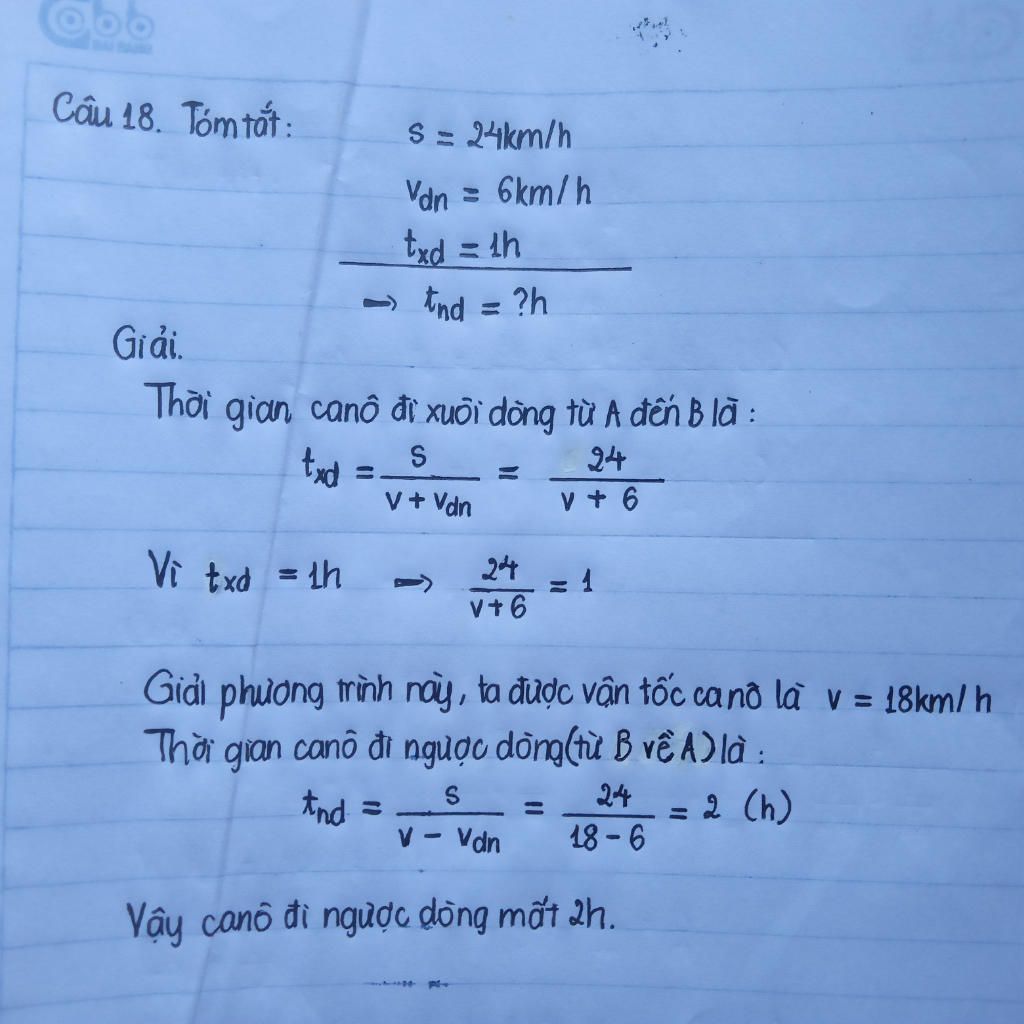 Câu 18. Tóm tắt:
s = 24km/h
v_dn = 6km/h
t_xd = 1h
→ t_nd = ?h
Giải.
Thời gian canô đi xuôi dòng từ A đến B là:
t_xd = s/(v + v_dn) = 24/(v + 6)
Vì t_xd = 1h → 24/(v+6) = 1
Giải phương trình này, ta được vận tốc canô là v = 18km/h
Thời gian canô đi ngược dòng (từ B về A) là:
t_nd = s/(v - v_dn) = 24/(18 - 6) = 2 (h)
Vậy canô đi ngược dòng mất 2h.